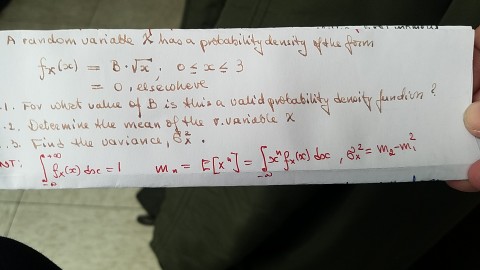 A random variable X has a probability density of the form
fx(x) = B·√x, 0 ≤ x ≤ 3
= 0, elsewhere
1. For what value of B is this a valid probability density function?
2. Determine the mean of the r.variable X
3. Find the variance, σx².
NT: ∫_{-∞}^{+∞} fx(x) dx = 1 mn = E[xⁿ] = ∫_{-∞} xⁿ fx(x) dx, σx² = m2 - m1²